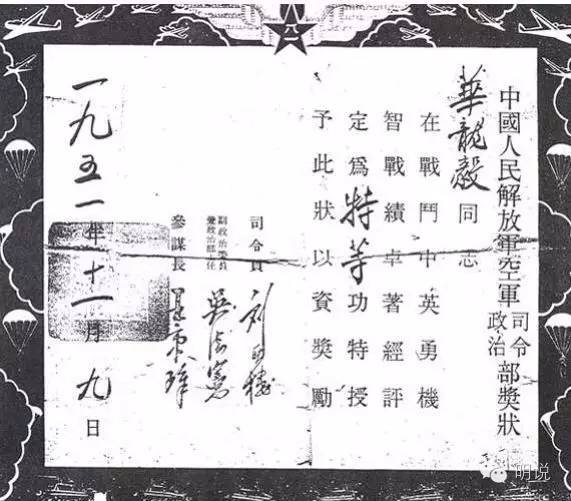 八一
中國人民解放軍空軍司令政治部獎狀
華龍毅同志
在戰鬥中英勇機
智戰績卓著經評
定爲特等功特授
予此狀以資獎勵
司令員 刘亚楼
副政治委員
兼政治部主任 吳法憲
參謀長 王秉璋
一九五一年十一月九日
明说